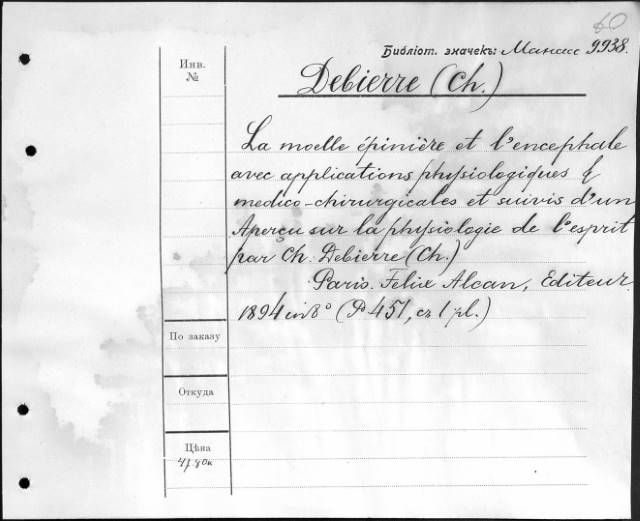 60
Библiот. значекъ: Манас 9938.
Инв.
№
Debierre (Ch.)
La moelle épinière et l'encephale
avec applications physiologiques &
medico-chirurgicales et suivis d'un
Aperçu sur la physiologie de l'esprit
par Ch. Debierre (Ch.)
Paris. Felix Alcan, Editeur.
1894 in 8° (P 451, съ 1 pl.)
По заказу
Откуда
Цѣна
4р. 80к